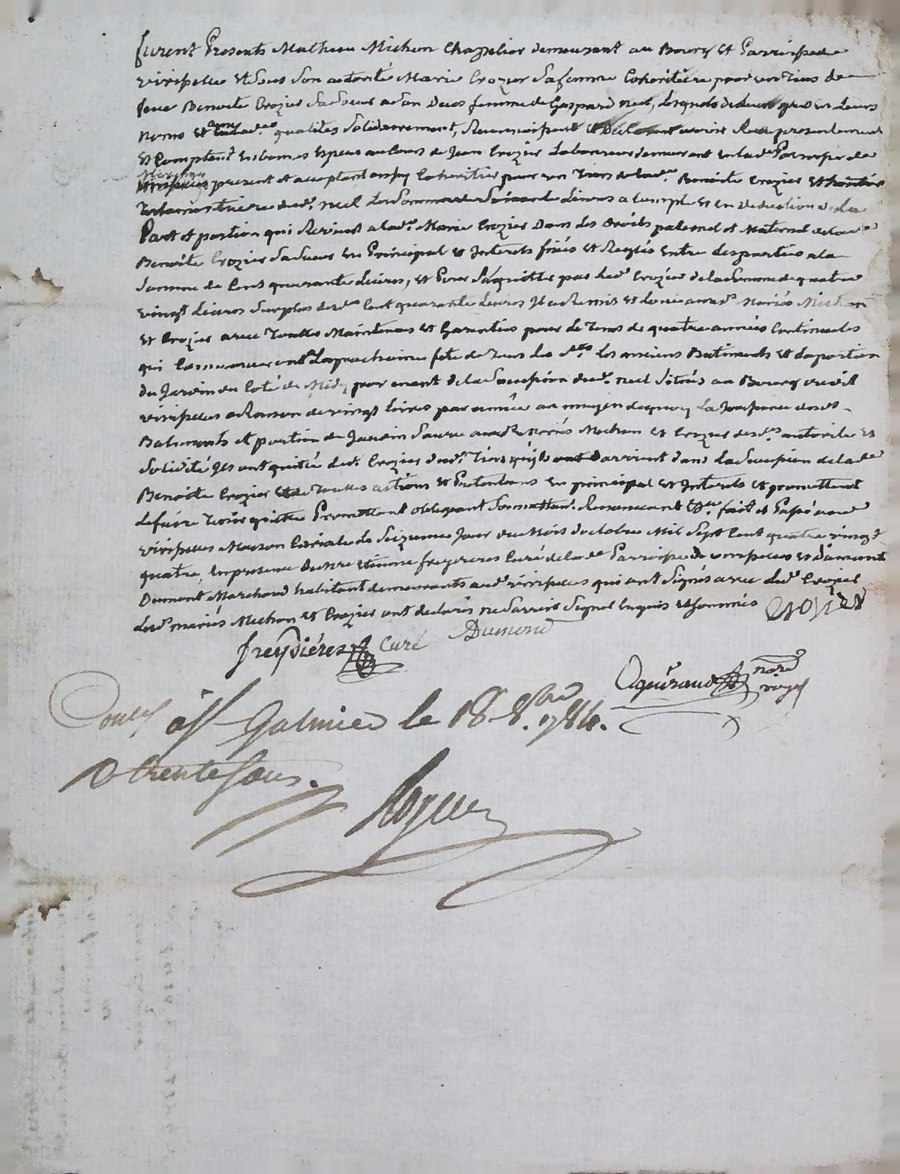 furent Presents Matheau Michon Chapelier demeurant au Bourg et Parroisse de
virissellee et sous son autorité Marie Crozier sa femme Cohéritière pour un tiers de
feue Benoite Crozier sa sœur a son deces femme de Gaspard neel, lesquels de leur gré en leurs
noms et qualités solidairement, Reconnoissent avoir Reçu presentement
et Comptent en bonnes especes au Cours de Jean Crozier Laboureur demeurant en lad. Parroisse de
present et acceptant aussy Cohéritier pour un Tiers de lad. Benoite Crozier et héritier
de lad. neel La Somme de Soixante Livres a Compte et en deduction de la
Part et portion qui Revient a lad. Marie Crozier Dans les Droits paternel et Maternel de lad.
Benoite Crozier sa sœur en Principal et Interets fixés et Reglés entre les parties a la
Somme de Cent quarante Livres, et Pour s'aquitter par led. Crozier de la Somme de quatre
vingt Livres Surplus desd. Cent quarante Livres Il a Remis et auxd. Mariés Michon
et Crozier avec Toutes Maintenues et Garanties pour le Tems de quatre années Continuelles
qui Commenceront La prochaine fete de Tous les Sts Les anciens Batiments et la portion
du Jardin du Coté de Midy provenant de la Succession dud. neel Situés au Bourg
a Raison de vingt Livres par année au moyen de quoy La Jouissance desd.
Batiments et portion de Jardin Sauve auxd. Mariés Michon et Crozier desd. autorité et
Solidité Ils ont quitté led. Crozier dud. Tiers arrivent dans la Succession de lad.
Benoite Crozier et de Toutes actions et Pretentions en principal et Interets et promettent
le faire Tenir quitte Promettant obligeant Soumettant Renonceant &c. fait et Passé aud.
Maison Curiale le Seizieme Jour du Mois d'octobre Mil Sept Cent quatre vingt
quatre, en presence de Mre Etienne freydieres Curé de lad. Parroisse de et d'
Dumont Marchand habitant demeurants aud. qui ont Signés avec led. Crozier
Lesd. mariés Michon et Crozier ont declarés ne Savoir Signer Enquis et Sommés CROZIER
freydiéres Curé Dumond
nore royal
Con. à St Galmier le 18 8bre 1784.
R trente sous.